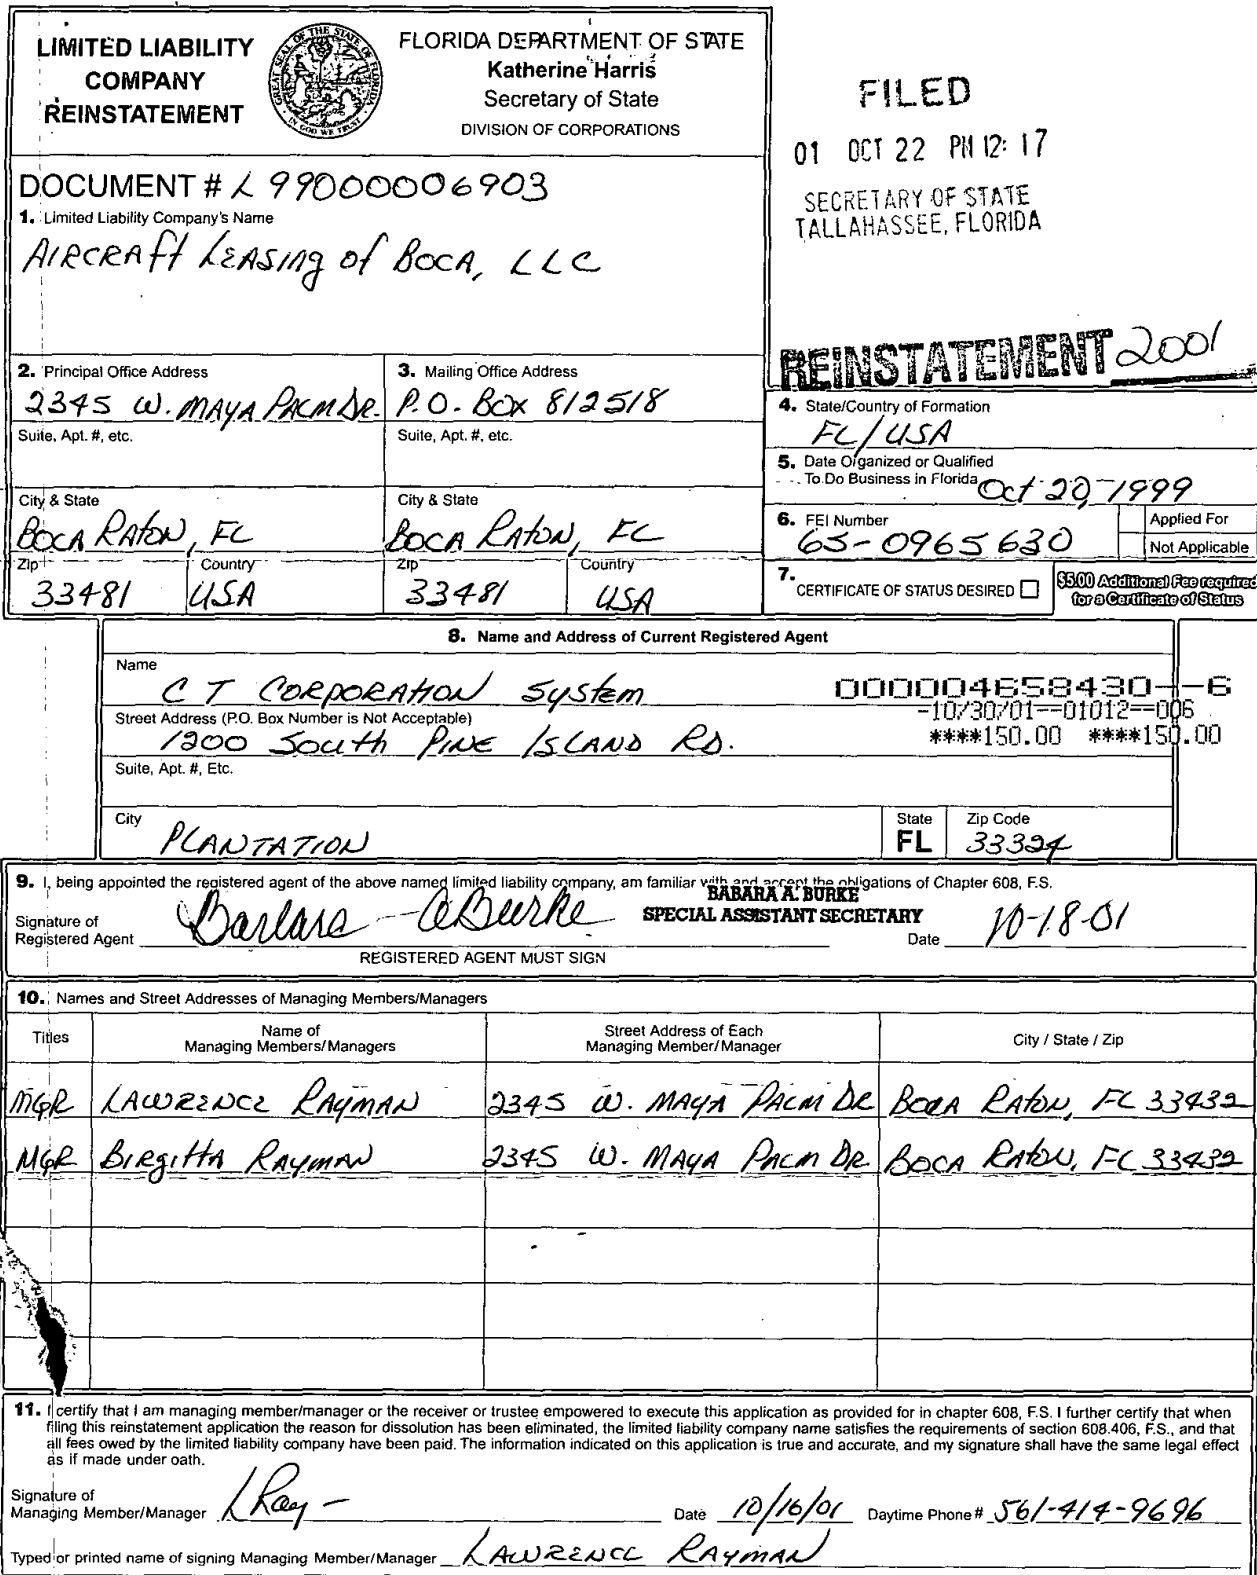 LIMITED LIABILITY COMPANY REINSTATEMENT
GREAT SEAL OF THE STATE OF FLORIDA
IN GOD WE TRUST
FLORIDA DEPARTMENT OF STATE
Katherine Harris
Secretary of State
DIVISION OF CORPORATIONS
FILED
01 OCT 22 PM 12:17
SECRETARY OF STATE
TALLAHASSEE, FLORIDA
DOCUMENT # L99000006903
1. Limited Liability Company's Name
AIRCRAft LEASing of BOCA, LLC
REINSTATEMENT 2001
2. Principal Office Address
2345 W. MAYA PALM DR.
3. Mailing Office Address
P.O. BOX 812518
Suite, Apt. #, etc.
Suite, Apt. #, etc.
City & State
BOCA RATON, FL
City & State
BOCA RATON, FL
Zip
33481
Country
USA
Zip
33481
Country
USA
4. State/Country of Formation
FL/USA
5. Date Organized or Qualified
To Do Business in Florida Oct 20, 1999
6. FEI Number
65-0965630
Applied For
Not Applicable
7. CERTIFICATE OF STATUS DESIRED
$5.00 Additional Fee required
for a Certificate of Status
8. Name and Address of Current Registered Agent
Name
C T CORPORATION SYStEM
000004658430--6
-10/30/01--01012--006
****150.00 ****150.00
Street Address (P.O. Box Number is Not Acceptable)
1200 South PINE ISLAND RD.
Suite, Apt. #, Etc.
City
PLANTATION
State
FL
Zip Code
33324
9. I, being appointed the registered agent of the above named limited liability company, am familiar with and accept the obligations of Chapter 608, F.S.
BABARA A. BURKE
SPECIAL ASSISTANT SECRETARY
Signature of
Registered Agent Barbara A Burke
Date 10-18-01
REGISTERED AGENT MUST SIGN
10. Names and Street Addresses of Managing Members/Managers
Titles
Name of
Managing Members/Managers
Street Address of Each
Managing Member/Manager
City / State / Zip
MGR LAWRENCE RAYMAN 2345 W. MAYA PALM DR BOCA RATON, FL 33432
MGR BIRgittA RAYMAN 2345 W. MAYA PALM DR BOCA RATON, FL 33432
11. I certify that I am managing member/manager or the receiver or trustee empowered to execute this application as provided for in chapter 608, F.S. I further certify that when
filing this reinstatement application the reason for dissolution has been eliminated, the limited liability company name satisfies the requirements of section 608.406, F.S., and that
all fees owed by the limited liability company have been paid. The information indicated on this application is true and accurate, and my signature shall have the same legal effect
as if made under oath.
Signature of
Managing Member/Manager L Ray
Date 10/16/01 Daytime Phone # 561-414-9696
Typed or printed name of signing Managing Member/Manager LAWRENCE RAYMAN